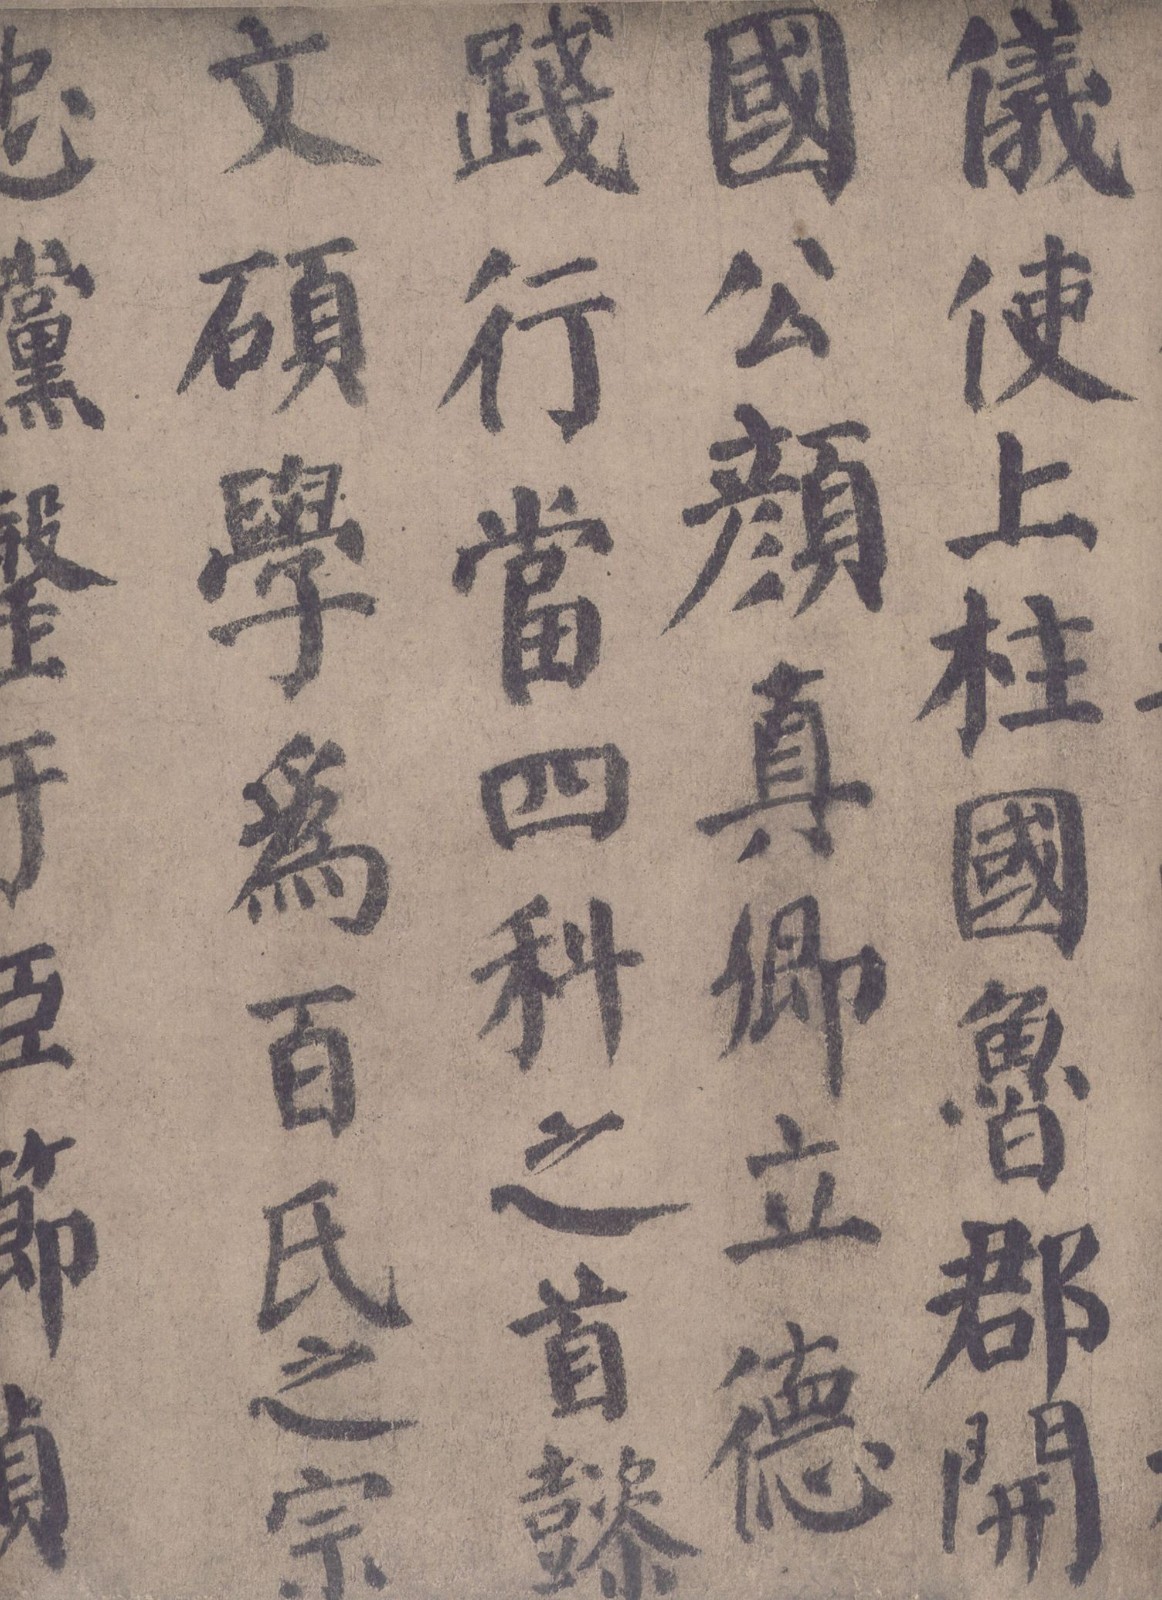 儀使上柱國魯郡開
國公顔真卿立德
踐行當四科之首懿
文碩學為百氏之宗
忠黨罄于臣節貞